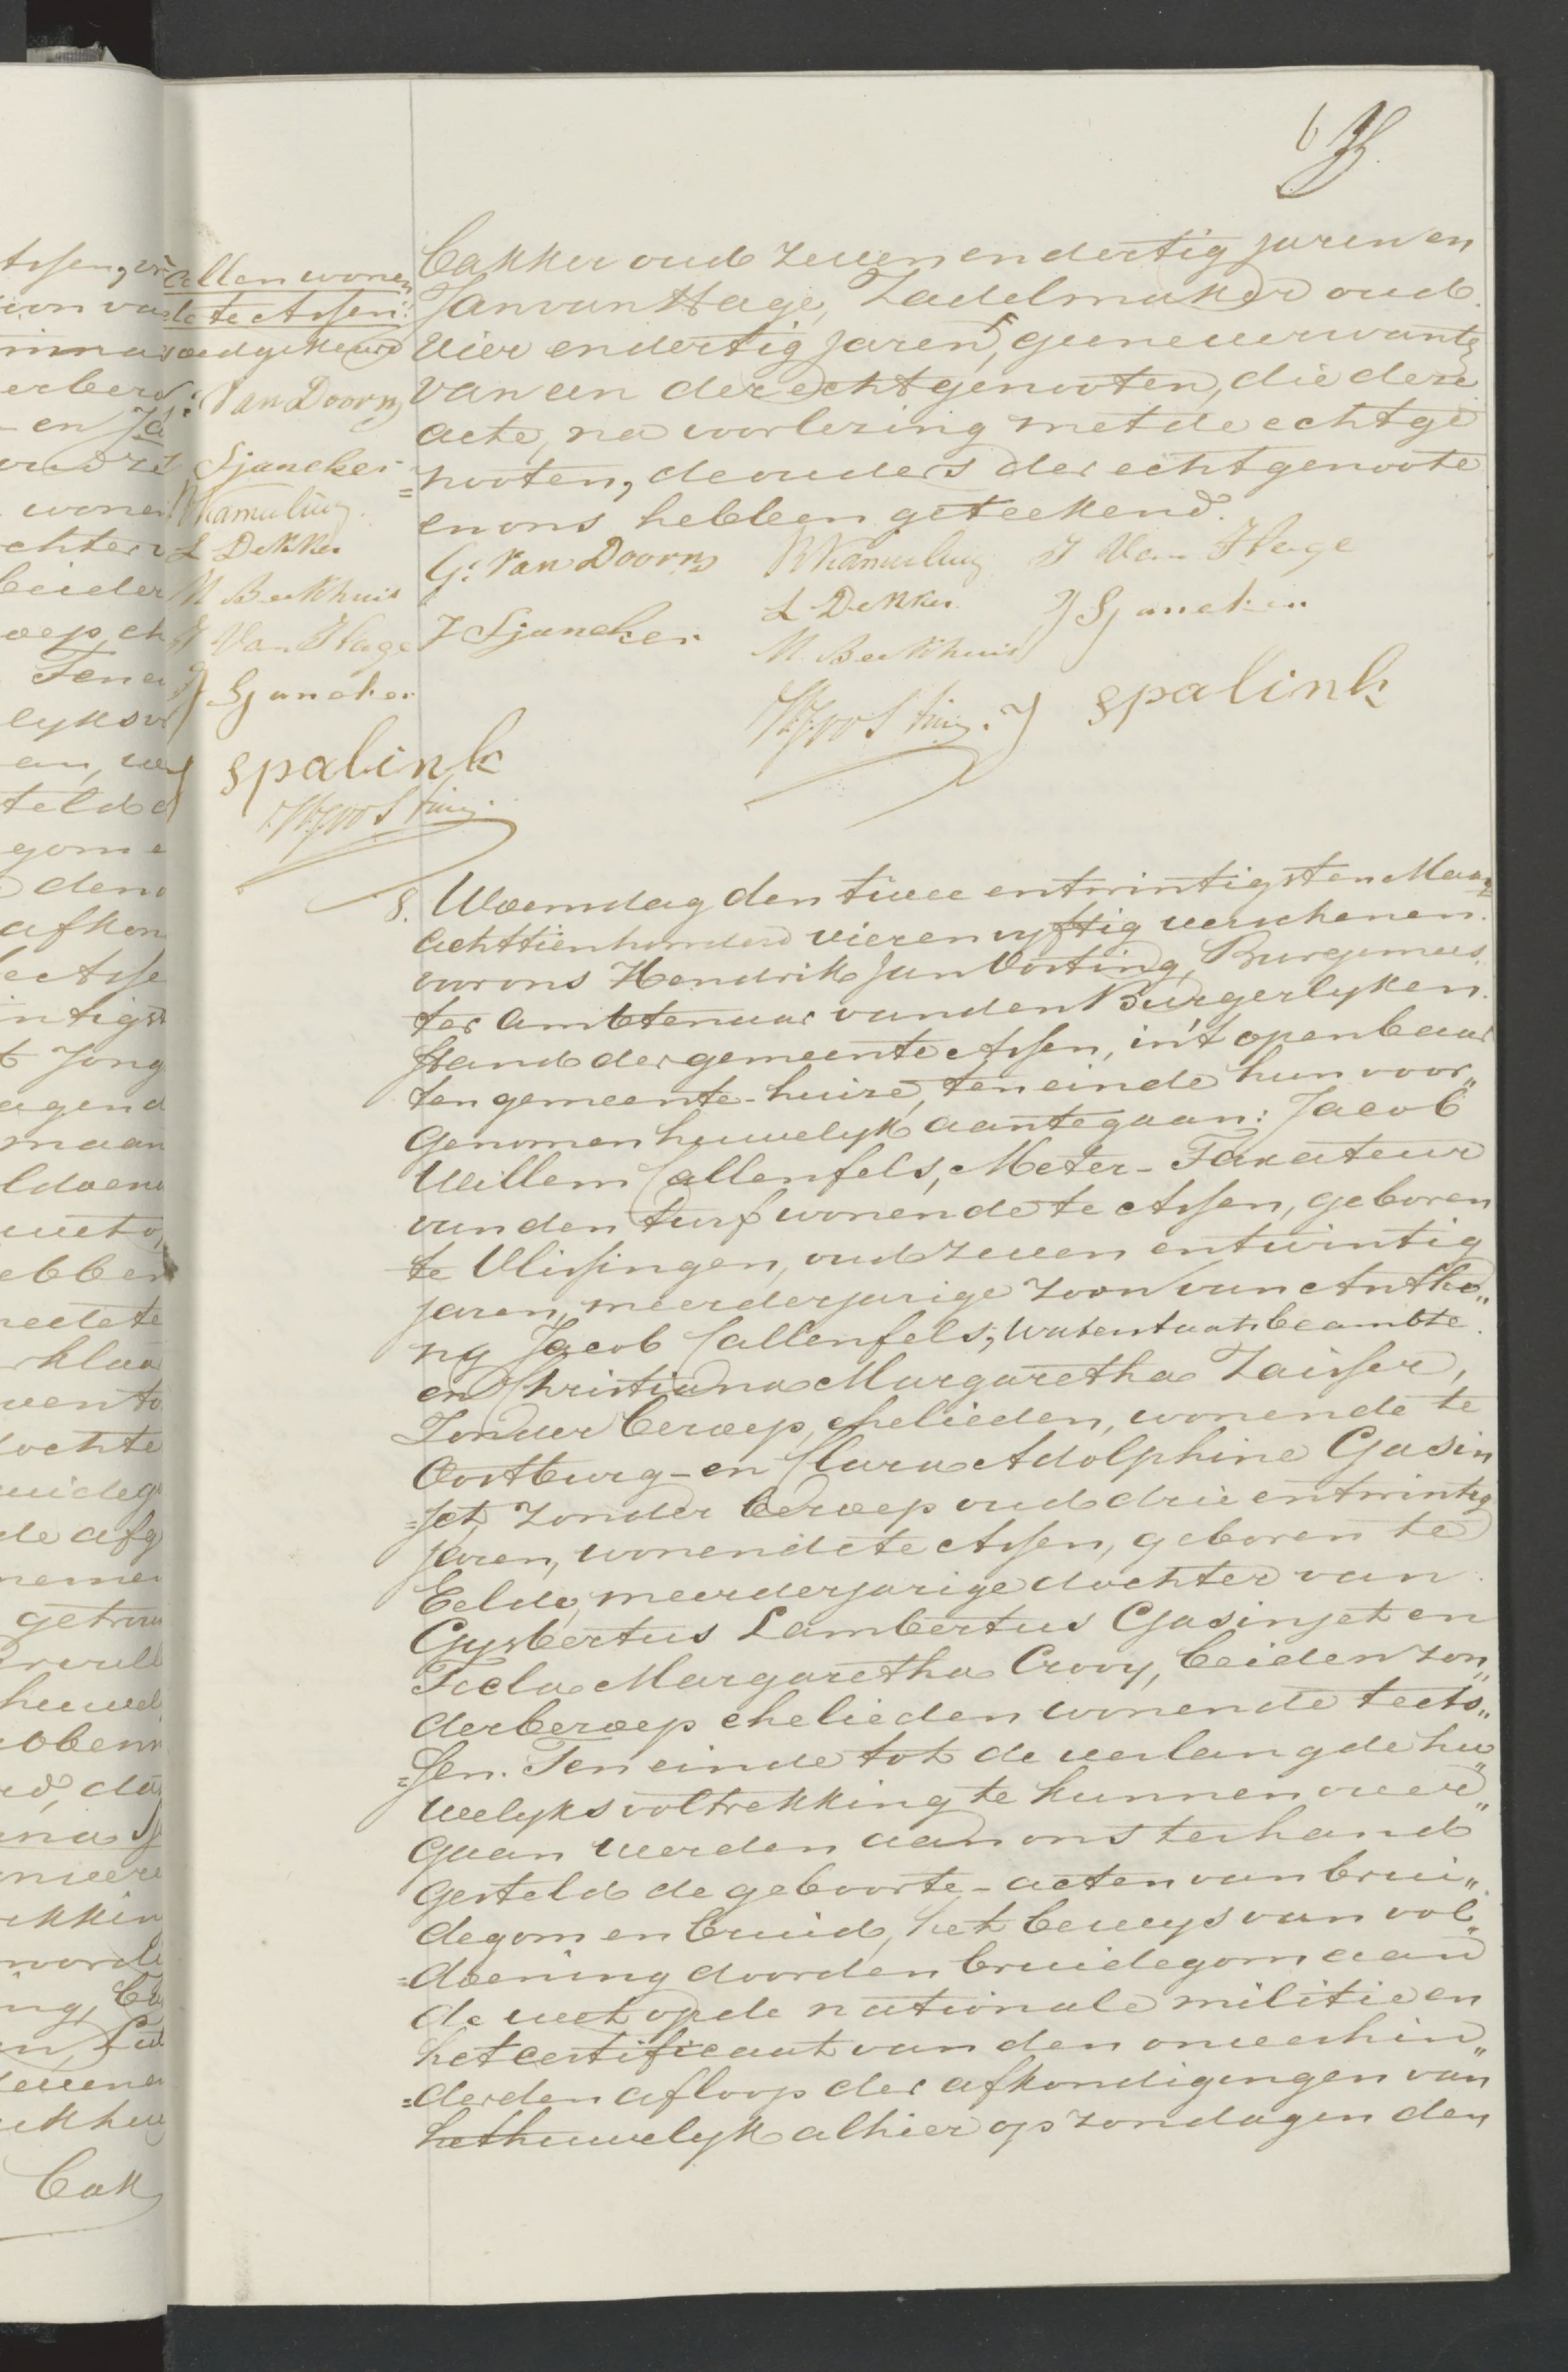 6
allen wonen
de te Assen:
goedgekeurd
G: Van Doorn
Sjuncker
L Dekker
M Beekhuis
J Van Hage
J Sjuncker
J spalink
bakker oud zeven en dertig jaren en
Jan van Hage, Zadelmaker oud
vier en dertig jaren, geene verwanten
van een der echtgenooten, die deze
acte, na voorlezing met de echtge
=nooten, de ouders der echtgenoote
en ons hebben geteekend.
G: Van Doorn J Van Hage
L Dekker J Sjuncker
J Sjuncker
M. Beekhuis
J spalink
8. Woensdag den twee en twintigsten Maart
achttienhonderd vier en vyftig verschenen
voor ons Hendrik Jan Oosting, Burgemees
ter Ambtenaar van den Burgerlyken
stand der gemeente Assen, in 't openbaar
ten gemeente-huize, ten einde hun voor„
genomen huwelyk aantegaan: Jacob
Willem Callenfels, Meter-Taxateur
van den turf wonende te Assen, geboren
te Vlissingen, oud zeven en twintig
jaren, meerderjarige zoon van Antho„
ny Jacob Callenfels, waterstaatsbeambte
en Christiana Margaretha Zaisser,
Zonder beroep, ehelieden, wonende te
Oostburg - en Clara Adolphine Gasin
=jet, zonder beroep oud drie en twintig
jaren, wonende te Assen, geboren te
Eelde, meerderjarige dochter van
Gysbertus Lambertus Gasinjet en
Margaretha Crooy, beiden zon„
der beroep ehelieden wonende te As„
=sen. Ten einde tot de verlangde hu„
welyksvoltrekking te kunnen over„
gaan werden aan ons ter hand
gesteld de geboorte-acten van brui„
degom en bruid, het bewys van vol„
=doening door den bruidegom aan
de wet op de nationale militie en
het certificaat van den onverhin„
=derden afloop der afkondigingen van
het huwelyk alhier op zondagen den